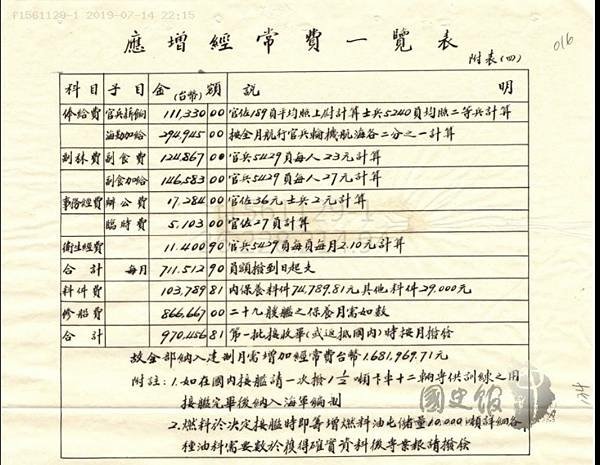 F1561129-1 2019-07-14 22:15
應增經常費一覽表
附表(四)
016
科目 子目 金(台幣)額 說明
俸給費 官兵薪餉 111,330 00 官佐189員平均照上尉計算士兵5240員均照二等兵計算
海勤加給 294,945 00 按全月航行官兵輪機航海各二分之一計算
副秣費 副食費 124,867 00 官兵5429員每人23元計算
副食加給 146,583 00 官兵5429員每人27元計算
事務經費 辦公費 17,284 00 官佐36元士兵2元計算
臨時費 5,103 00 官佐27員計算
衛生經費 11,400 90 官兵5429員每員每月2.10元計算
合計 每月 711,512 90 員額撥到日起支
料件費 103,789 81 內保養料件74,789.81元其他料件29,000元
修船費 866,667 00 二十九艘艦之保養月需如數
合計 970,456 81 第一批接收華(或返抵國內)時按月撥發
故全部納入建制月需增加經常費台幣1,681,969.71元
附註:1.如在國內接艦請一次撥1½噸卡車十二輛專供訓練之用
接艦完畢後納入海軍編制
2.燃料於決定接艦時即籌增燃料油屯儲量10,000噸詳細各
種油料需要數於獲得確實資料後專案報請撥發
國史館